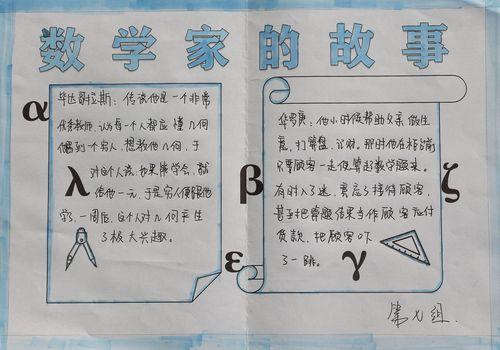 数学家的故事
α
毕达哥拉斯：传说他是一个非常
优秀教师，认为每一个人都应懂几何
他看到一个穷人，想教他几何，于
对这个人说：如果你学会，就
给他一元，于是穷人便跟他
学，一周后，这个人对几何产生
了极大兴趣。
λ
β
ε
华罗庚：他小时候帮助父亲做生
意，打算盘，记账。那时他在柜台前
只要顾客一走便算起数学题来。
有时入了迷，竟忘了接待顾客，
甚至把算题结果当作顾客应付
货款，把顾客吓
了一跳。
ζ
γ
第九组.